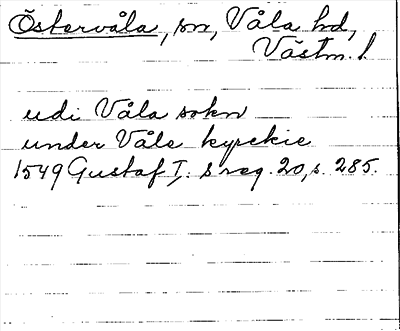 Östervåla, sn, Våla hd,
Västm. l.
udi Våla sokn
under Våle kyrckie
1549 Gustaf I: s reg. 20, s. 285.